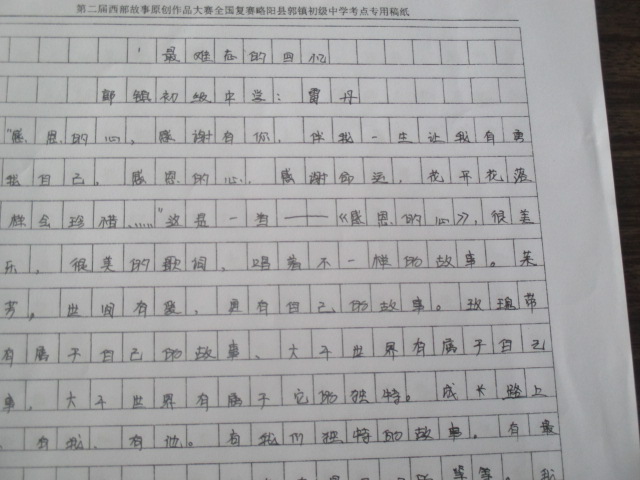 第二届西部故事原创作品大赛全国复赛略阳县郭镇初级中学考点专用稿纸
最难忘的回忆
郭镇初级中学：雷丹
"感恩的心，感谢有你，伴我一生让我有勇
我自己，感恩的心，感谢命运，花开花落
样会珍惜……"这是一首——《感恩的心》，很美
乐，很美的歌词，唱着不一样的故事。茉
芳，世间有爱，更有自己的故事。玫瑰带
有属于自己的故事、大千世界有属于自己
事，大千世界有属于它的独特。成长路上
、有我、有他。有我们独特的故事。有最
等。我